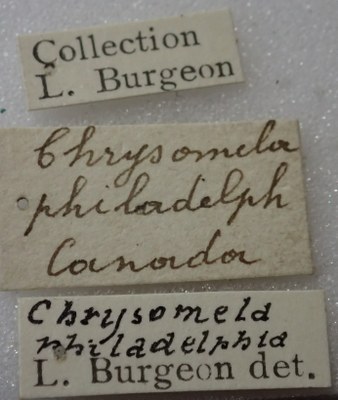 Collection
L. Burgeon
Chrysomela
philadelph
Canada
Chrysomela
philadelphia
L. Burgeon det.